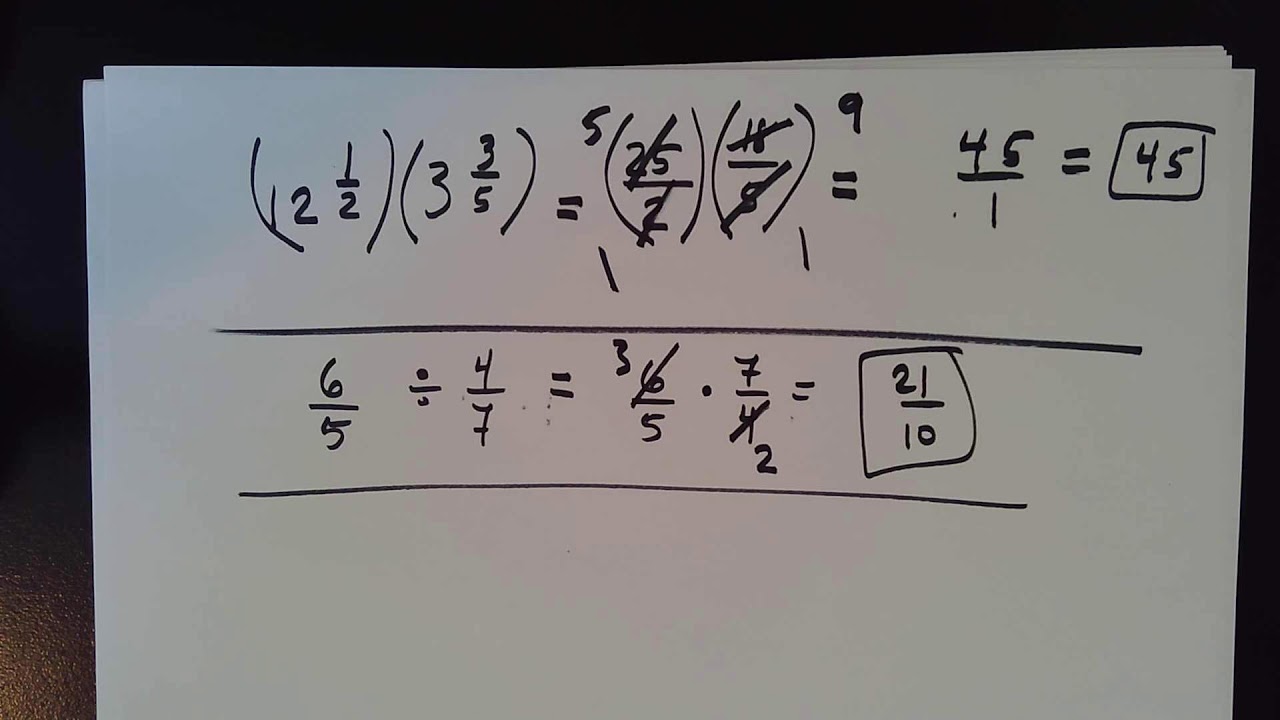 (12 1/2)(3 3/5) = 5(25/2)(18/5)9 = 45/1 = 45
1 1
6/5 ÷ 4/7 = 3 6/5 · 7/4 2 = 21/10